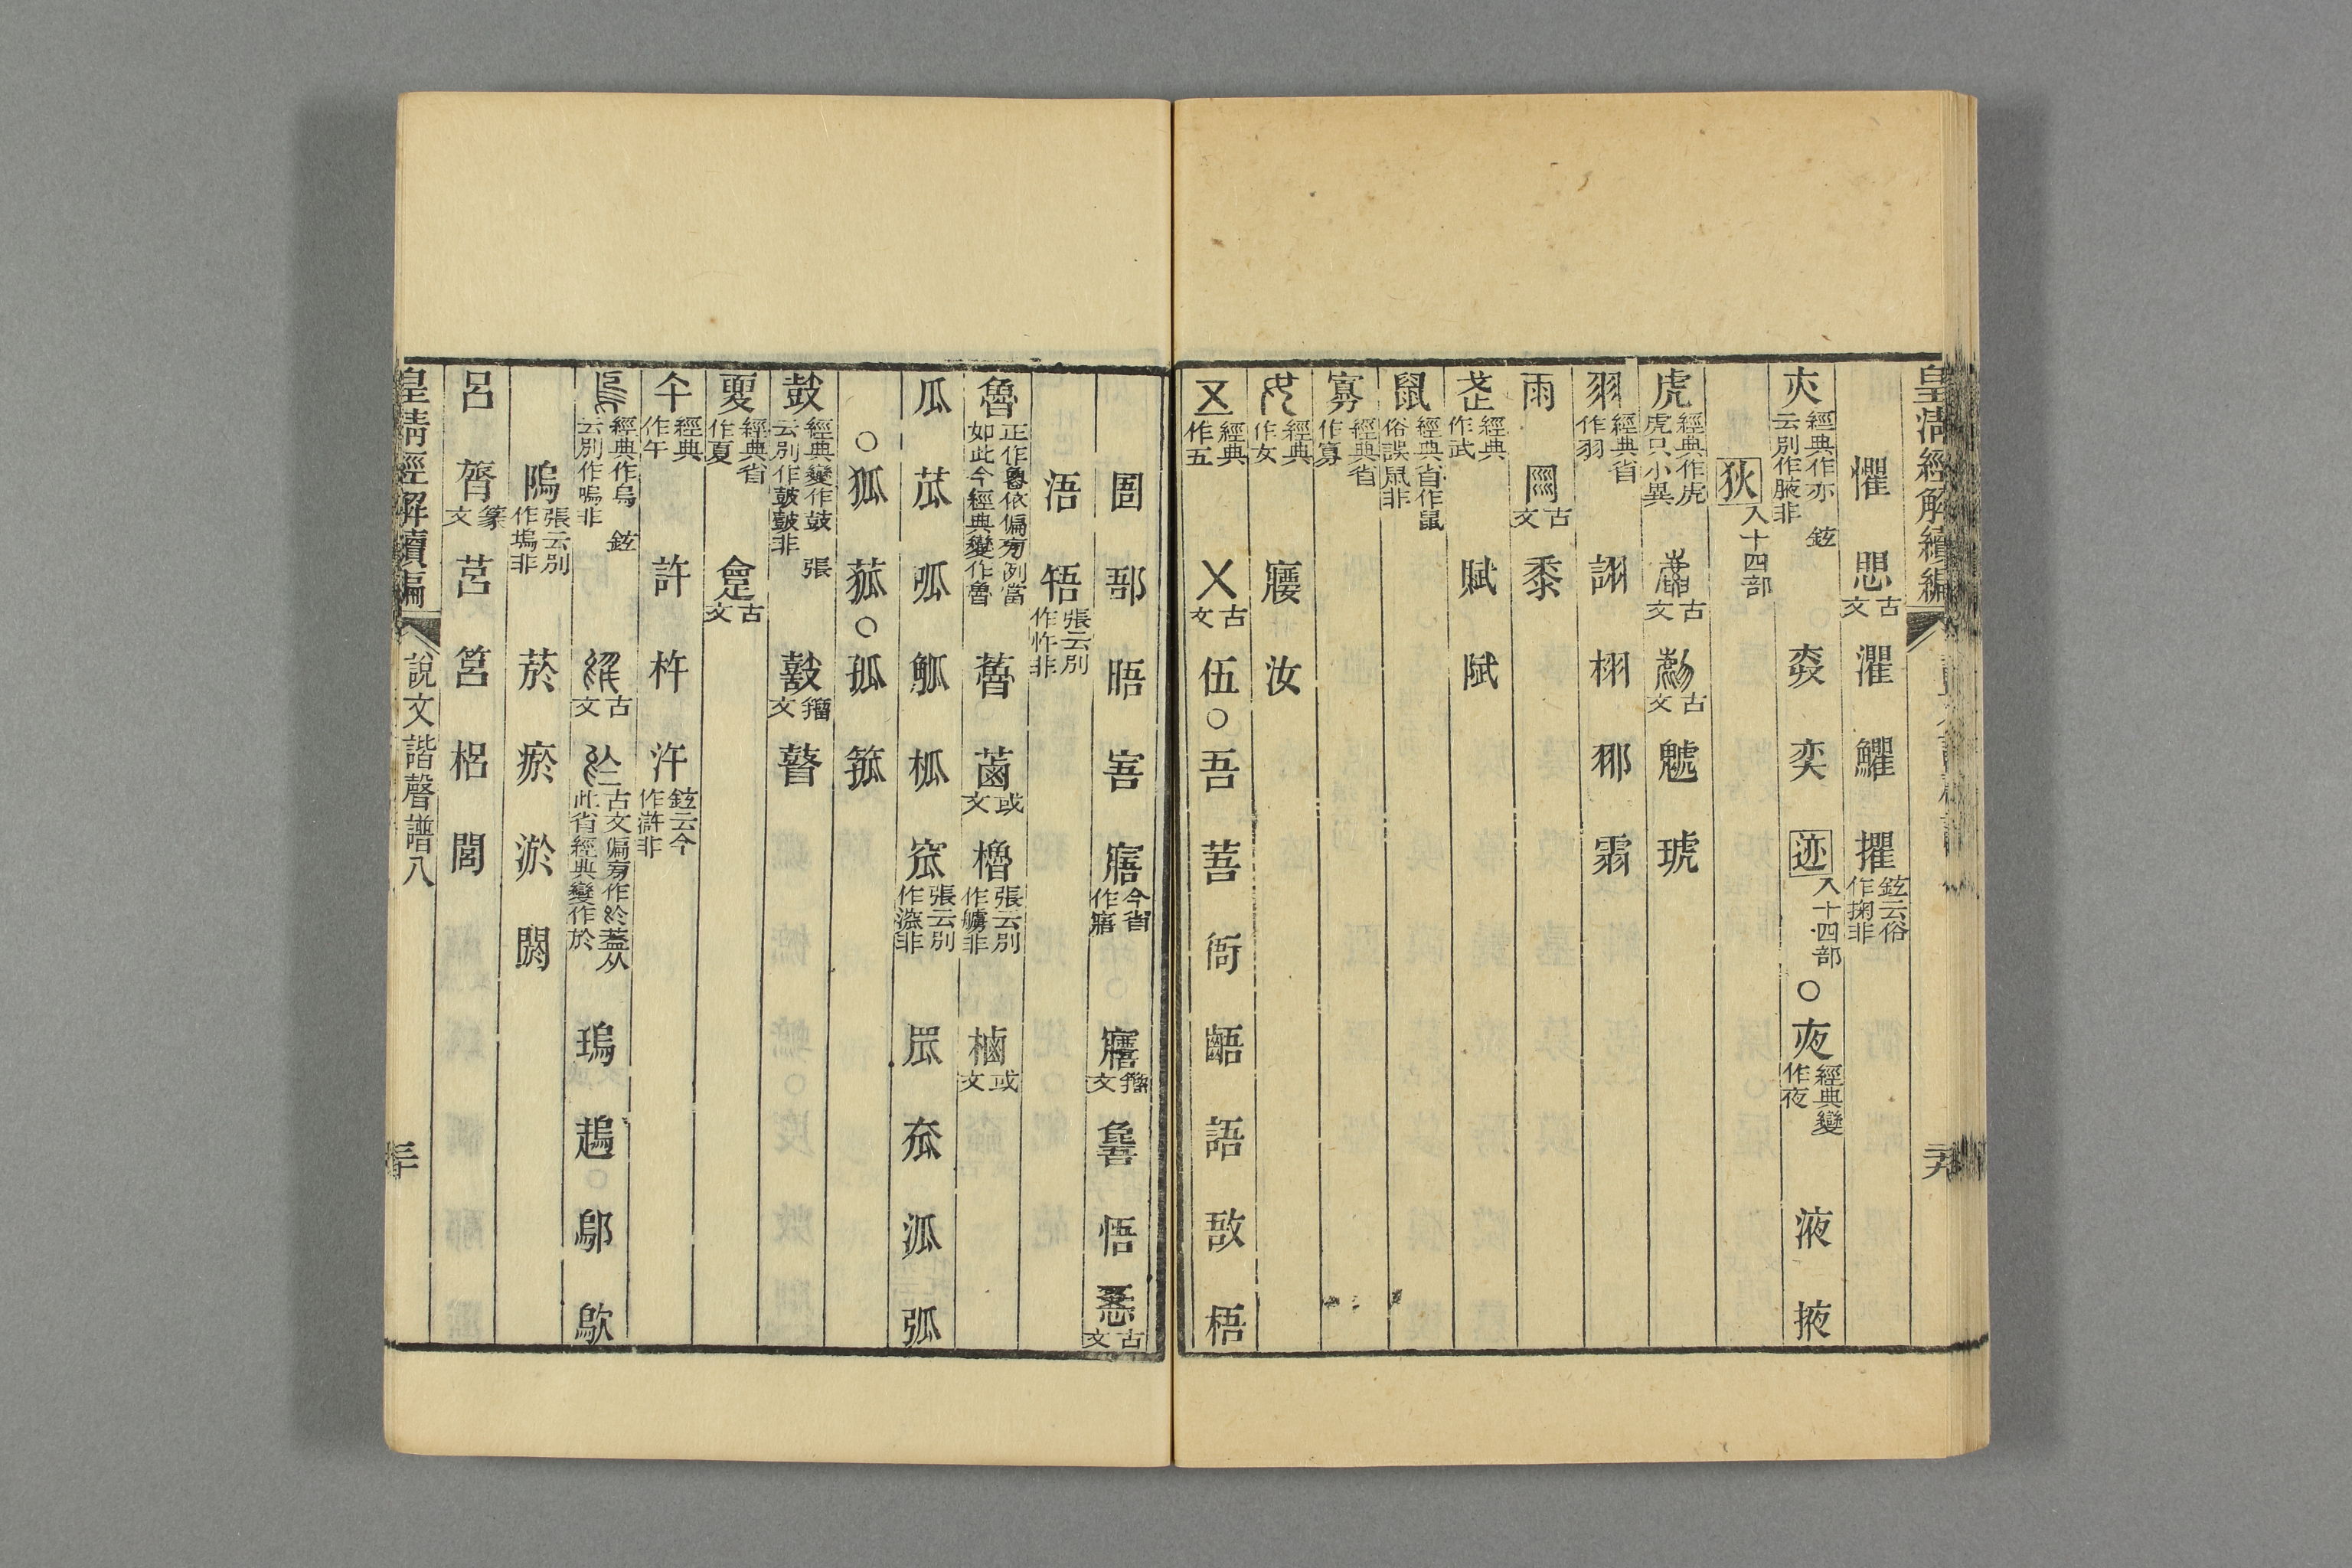 皇清經解續編
懼 愳古文 灈 鸜 㩴鉉云俗作掬非
夾經典作亦 鉉云別作腋非 㚎 奕 迹入十四部 ○ 夜經典變作夜 液 掖
狄入十四部
虎經典作虎虎只小異 古文 古文 䖘 琥
羽經典省作羽 詡 栩 鄅 䨞
雨 古文 黍
武經典作武 賦
鼠經典省作鼠俗誤䑕非
寡經典省作寡
女經典作女 㝥 汝
五經典作五 㐅古文 伍 ○ 吾 䓊 衙 齬 語 敔 梧
圄 郚 晤 㝛 寤今省作寤 籒文 䮏 悟 㤳古文
浯 啎張云別作忤非
魯正作魯依偏旁例當如此今經典變作魯 蕾 菌或文 櫓張云別作艣非 樐或文
瓜 苽 呱 觚 柧 窊張云別作漥非 罛 㚌 泒 弧
○ 狐 菰 ○ 孤 箛
鼓經典變作鼓 張云別作皷皷非 籒文 瞽
夏經典省作夏 古文
午經典作午 許 杵 汻鉉云今作滸非
烏經典作烏 鉉云別作嗚非 古文 古文偏旁作於蓋从此省經典變作於 瑦 䞩 鄔 歍
隖張云別作塢非 菸 瘀 淤 閼
呂 膂篆文 莒 筥 梠 閭
皇清經解續編 說文諧聲譜八 三十